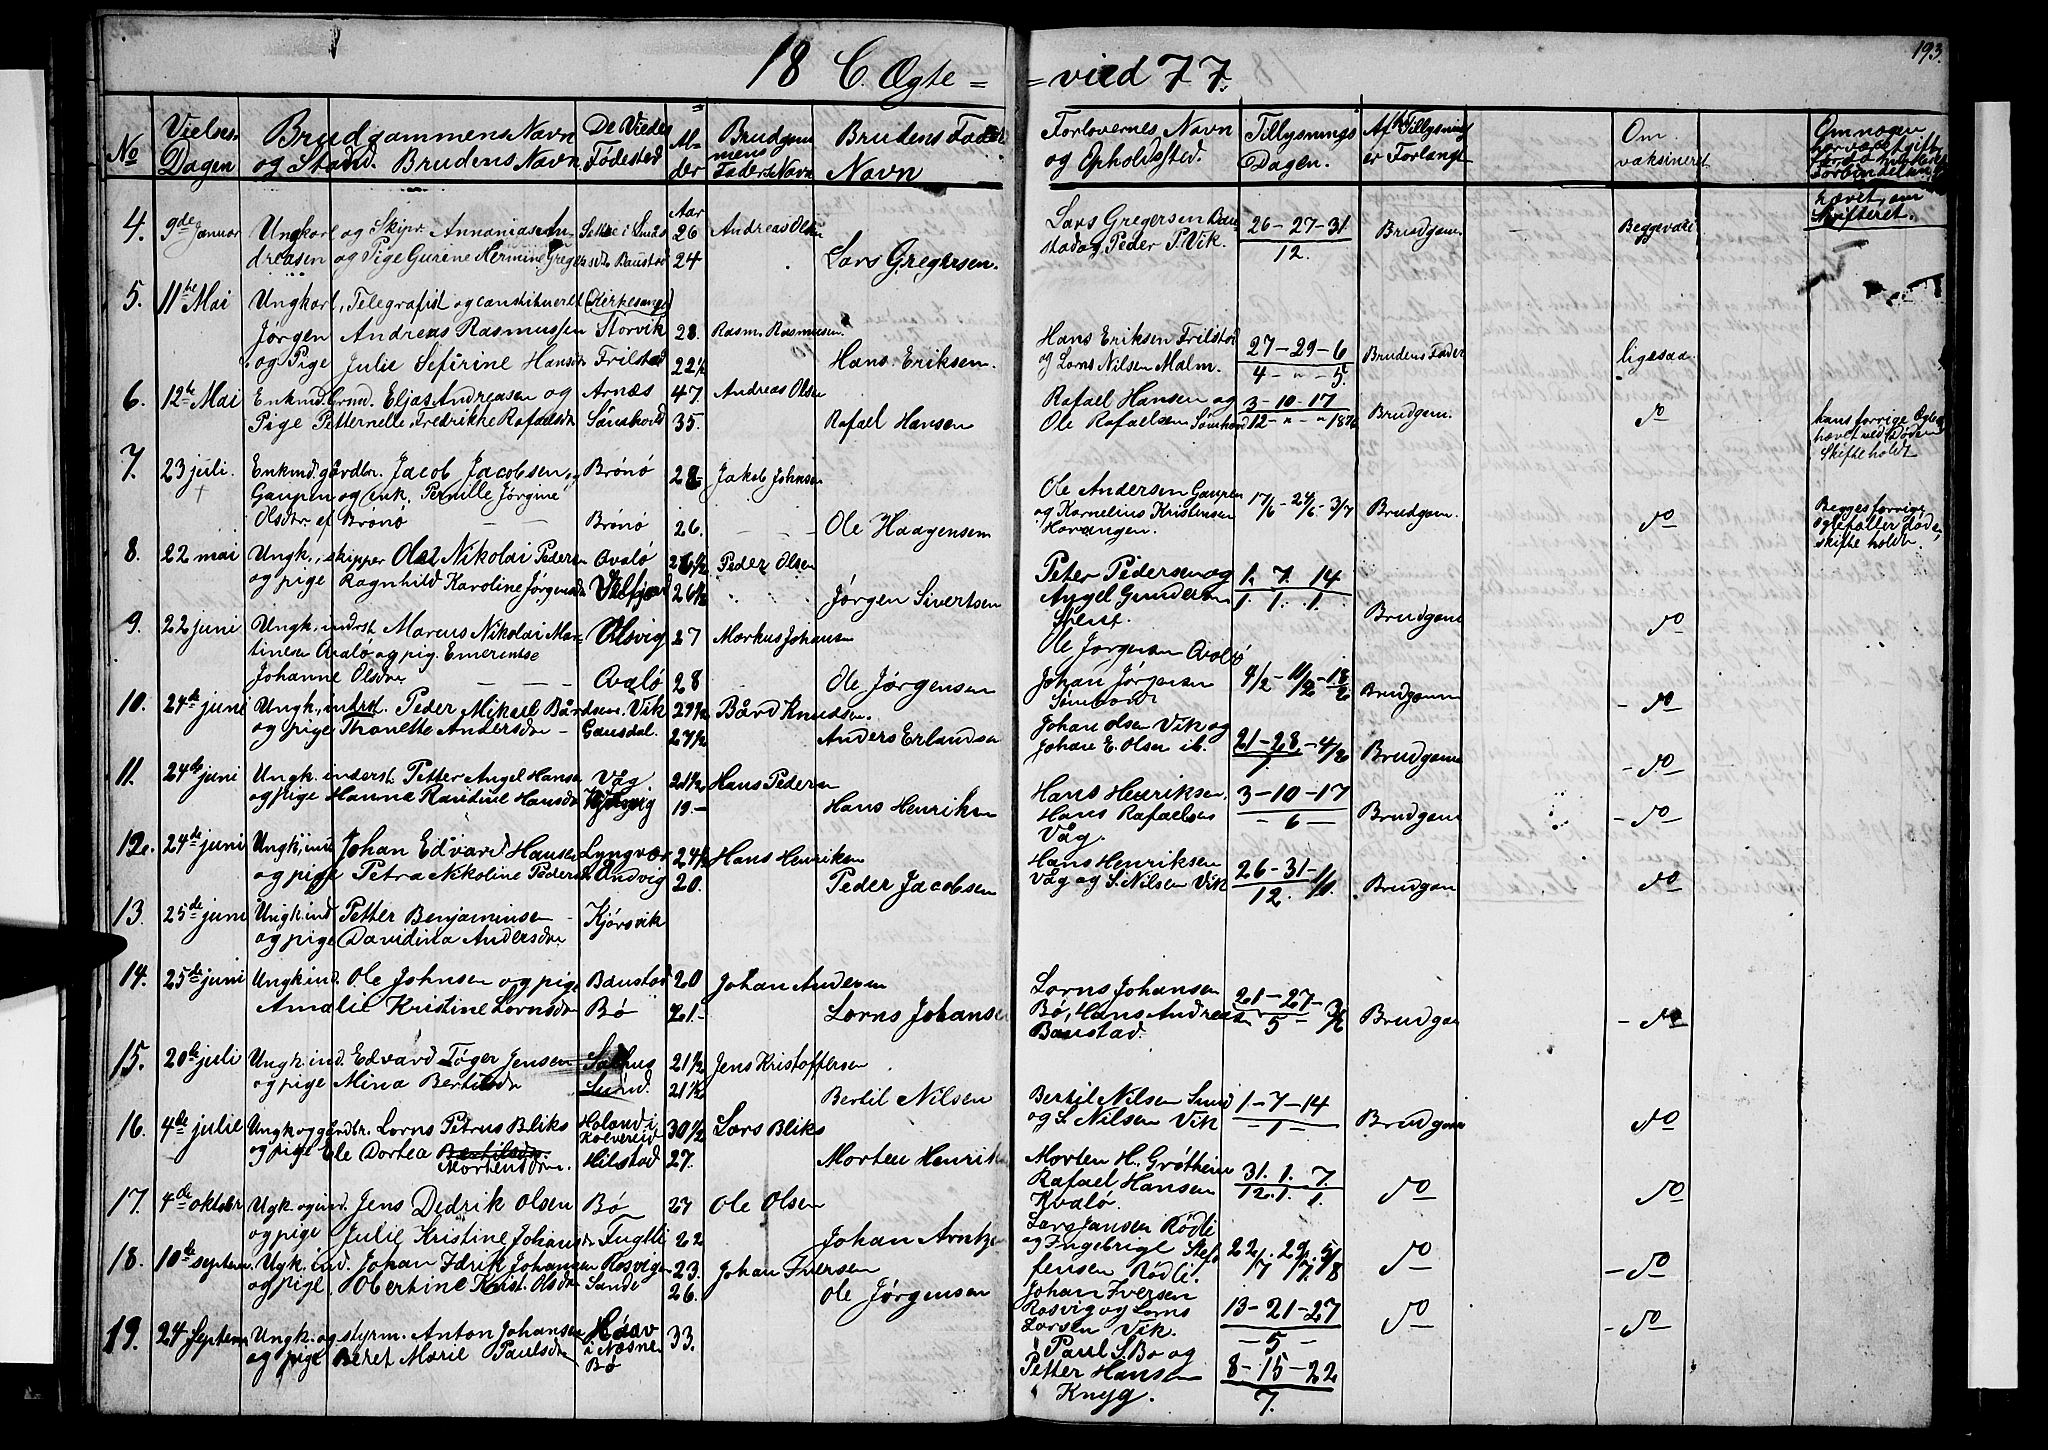 193.
18 C. Ægte = = vied 77.
No
Vielses Dagen
Brudgommens Navn og Stand. Brudens Navn
De Viedes Fødested
Al- der
Brudgom mens Faders Navn
Brudens Fader Navn
Forlovernes Navn og Opholdssted.
Tillysnings Dagen.
Af Tillysning er Forlangt
Om vaksineret
Om nogen har været gift før
hævet, om skifteret.
4. 9de Januar Ungkarl og Skipr Annanias An- Aar 26 Andreas Olsen Lars Gregersen 26-27-31 Brudgom.
dreasen og Pige Gurene Hermine Gregersdtr Baustad 24 Lars Gregersen. stad og Peder P. Vik. 12.
5. 11te Mai Ungkarl, Telegrafist og constitueret
Jørgen Andreas Rasmussen Storvik 28. Rasm. Rasmussen. Hans Eriksen Frilstad 27-29-6 Brudens Fader ligesaa
og Pige Julie Sefirine Hansdr Frilstad 22½ Hans Eriksen. og Lorns Nilsen Malm. 4 - " - 5.
6. 12te Mai Enkmd. Grmd. Eljas Andreasen og Arnæs 47. Andreas Olsen Rafael Hansen og 3-10-17 Brudgom. do
Pige Petternelle Fredrikke Rafaelsdr Sømhovd 35. Rafael Hansen Ole Rafaelsen Sømhovd 12 - " - " 1876
hans forrige Ægtesk hævet ved Døden Skifte holdt
7. 23 juli. Enkmd. gårdbr. Jacob Jacobsen Brønø 28 Jakob Johnsen Ole Andersen Gaupen 17/6 - 24/6 - 3/7 Brudgom. do
Gaupen og enk. Pernille Jørgine
Olsdtr ef Brønø — — Brønø 26. Ole Haagensen og Kornelius Kristensen Horvangen.
Begges forrige døde, skifte holdt.
8. 22 mai Ungk., skipper Ole Nikolai Pedersen Qvalø 26½ Peder Olsen Peter Pedersen og 1. 7. 14
og pige Ragnhild Karoline Jørgensdr Velfjord 26½ Jørgen Sivertsen Angel Gundersen 1. 1. 1. Brudgom do
9. 22 juni Ungk, inderst Marcus Nikolai Mar- Olsvig 27 Markus Johansen Ole Jørgensen Qvalø
tinsen Qvalø og pig. Emerentse
Johanne Olsdtr — — Qvalø 28 Ole Jørgensen Johan Jørgensen 4/2 - 11/2 - 18/2 Brudgom - do
10. 24de juni Ungk, indrst. Peder Mikael Bårdsen. Vik 29½ Bård Knudsen. Johan Olsen Vik og 21-28-4/2 Brudgom - do
og pige Thanette Andersdr - Gausdal. 27½ Anders Erlandsen Johan E. Olsen ib. 1
11. 24de juni Ungk. inderst. Petter Angel Hansen Våg 21½ Hans Pedersen Hans Henriksen, 3-10-17 Brudgom - do
og pige Hanne Randine Hansdr 19.- Hans Henriksen Hans Rafaelsen Våg. - 6 -
12. 24de juni Ungk, ind Johan Edvard Hansen Lyngvær 24½ Hans Henriksen Hans Henriksen 26-31- Brudgom do
og pige Petra Nikoline Pedersdr Andvig 20. Peder Jacobsen Våg og S. Nilsen Vik 12.
13. 25de juni Ungk ind Petter Benjaminsen - Kjørsvik
og pige Davidina Andersdtr
14. 25de juni Ungk ind. Ole Johnsen og pige Baustad 20 Johan Andersen Lorns Johansen 21-27- Brudgom - do
Amalie Kristine Lornsdr Bø 21.- Lorns Johansen Bø, Hans Andreas Baustad. 5 -
15. 20de juli Ungk ind. Edvard Tøger Jensen Salhus 21½ Jens Kristoffersen
og pige Mina Bertilsdr Sund. 21½ Bertil Nilsen Bertil Nilsen Sund 1-7-14 Brudgom do
og S. Nilsen Vik - 1 -
16. 4de julie Ungk og gårdbr. Lorns Petrus Bliks Høland i Kolvereid 30½ Lars Bliks
og pige Ele Dortea Bertilsdtr. Mortensdtr. Hilstad 27. Morten Henriksen Morten H. Grøtheim 31. 1. 7 do do
Rafael Hansen Kvalø. 12. 1. 1.
17. 4de oktobr Ugk og ind. Jens Dedrik Olsen Bø 27 Ole Olsen
og pige Julie Kristine Johansdr Fuglli 22 Johan Arntzen Lars Jansen Rødli og Engebrigt Stef fensen Rødli. 22/7. 29/7. 5/8 do - do
18. 10de septem. Ugk. ind. Johan Idrik Johansen Rosvigen 23. Johan Iversen Johan Iversen
og pige. Obertine Krist. Olsdr Sande 26. Ole Jørgensen Rosvig og Lorns Larsen Vik. 13-21-27 do - do
- 5 -
19. 24 Septem Ungk. og styrm. Anton Johansen i Næsne 33. Paul S. Bø og 8-15-22
og pige Beret Marie Paulsdr Bø Petter Hansen Knyg. 7.